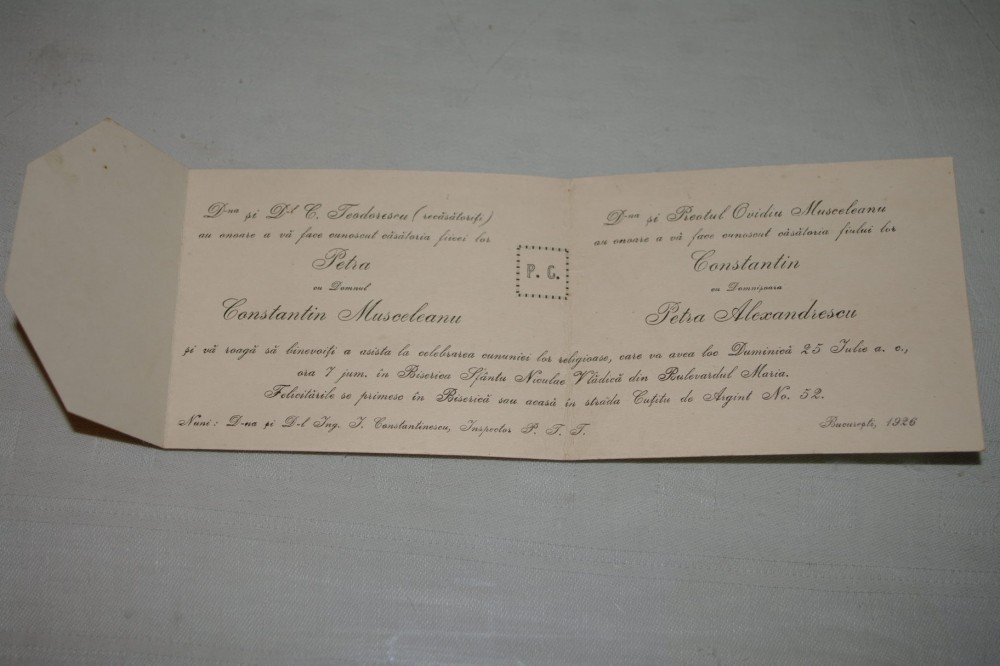 D-na și D-l C. Teodorescu (recăsătoriți)
au onoare a vă face cunoscut căsătoria fiicei lor
Petra
cu Domnul
Constantin Musceleanu
P. C.
D-na și Preotul Ovidiu Musceleanu
au onoare a vă face cunoscut căsătoria fiului lor
Constantin
cu Domnișoara
Petra Alexandrescu
și vă roagă să binevoiți a asista la celebrarea cununiei lor religioase, care va avea loc Duminică 25 Iulie a. c.,
ora 7 jum. în Biserica Sfântu Niculae Vlădică din Bulevardul Maria.
Felicitările se primesc în Biserică sau acasă în strada Cuțitu de Argint No. 52.
Nuni: D-na și D-l Ing. I. Constantinescu, Inspector P. T. T.
București, 1926